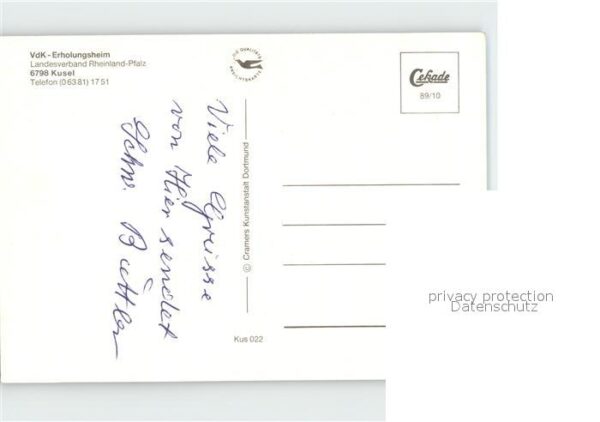 VdK-Erholungsheim
Landesverband Rheinland-Pfalz
6798 Kusel
Telefon (06381) 1751
DIE QUALITÄTS
ANSICHTSKARTE
Cekade
89/10
Viele Grüsse
von Hier sendet
Schw.
© Cramers Kunstanstalt Dortmund
Kus 022
privacy protection
Datenschutz